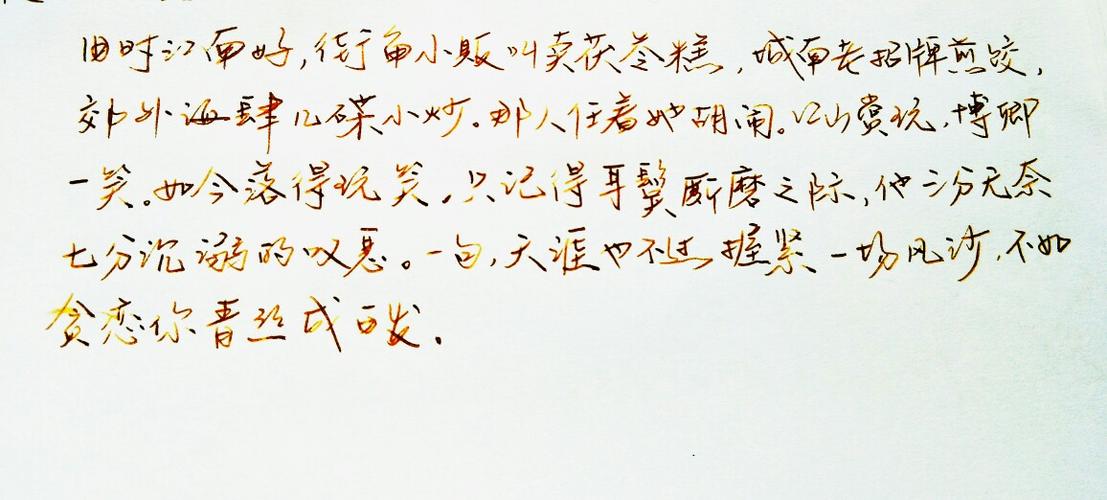 旧时江南好,街角小贩叫卖茯苓糕,城南老招牌煎饺,
郊外酒肆几碟小炒。那人任着她胡闹。江山赏玩,博卿
一笑。如今落得玩笑。只记得耳鬓厮磨之际,他三分无奈
七分沉溺的叹息。一句,天涯也不过握紧一场风沙,不如
贪恋你青丝成白发.